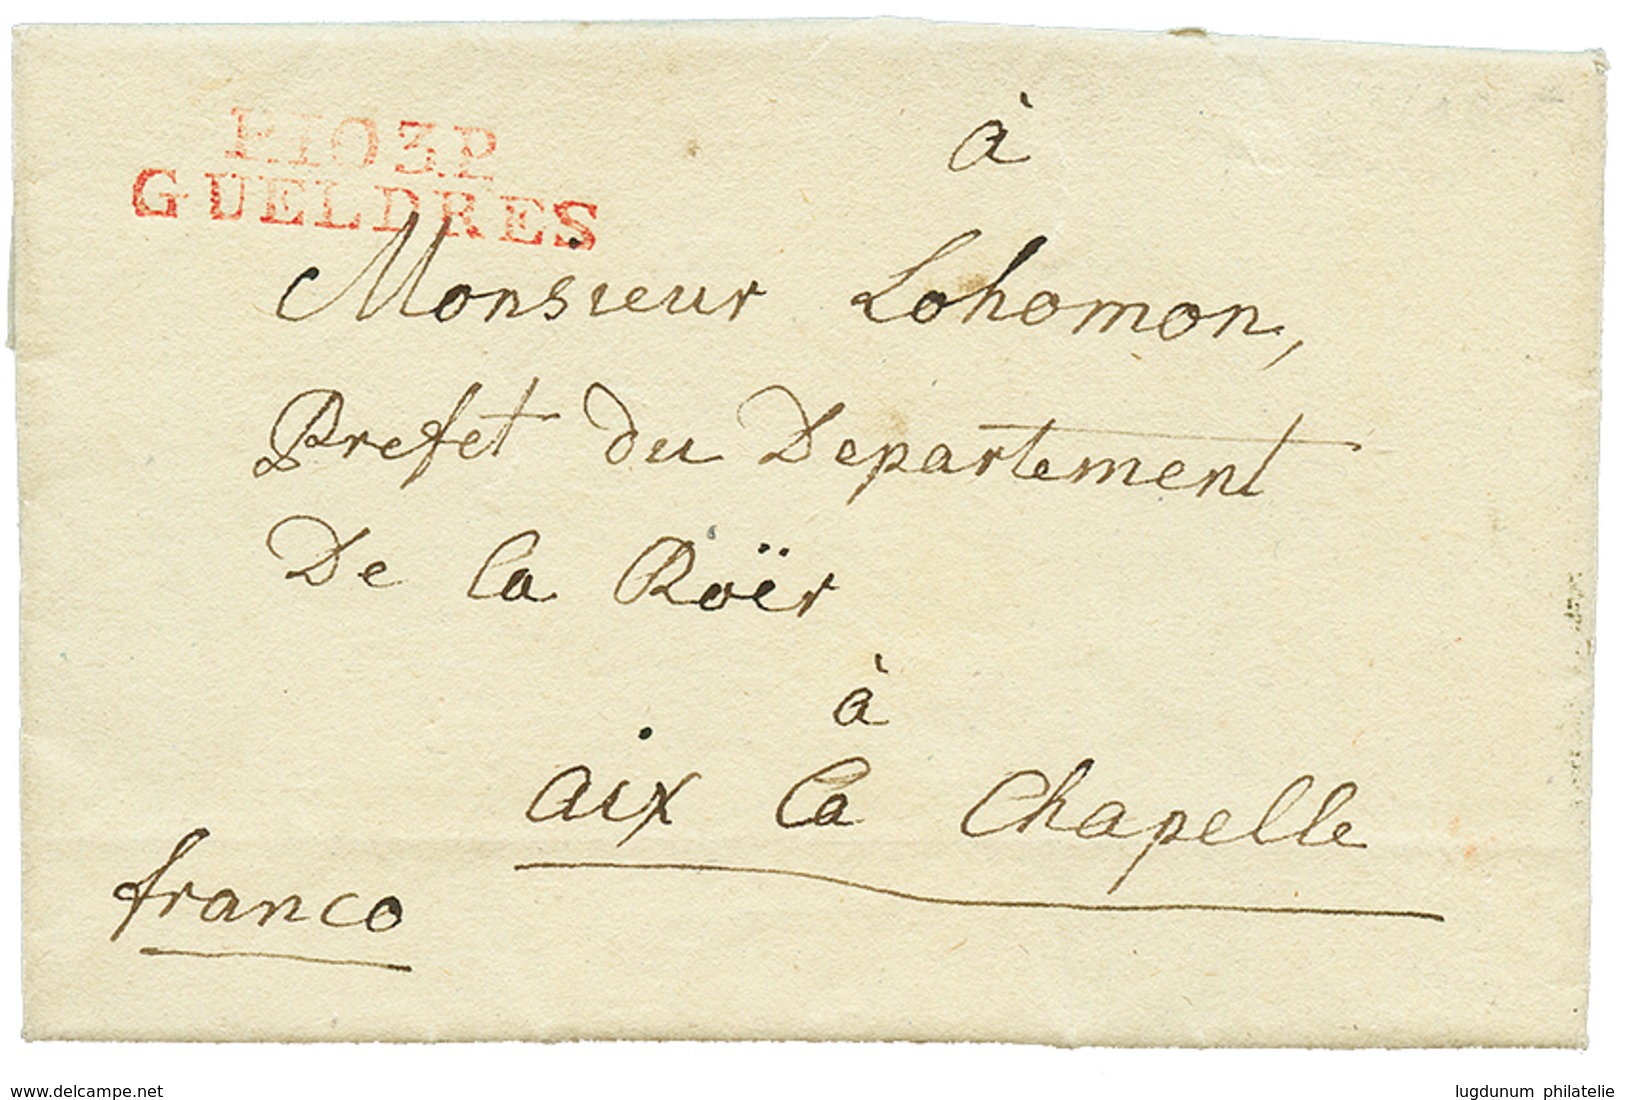 P.103.P.
GUELDRES
à
Monsieur Lohomon,
Prefet du Departement
De la Roër
à
aix la Chapelle
franco
www.delcampe.net
lugdunum philatelie